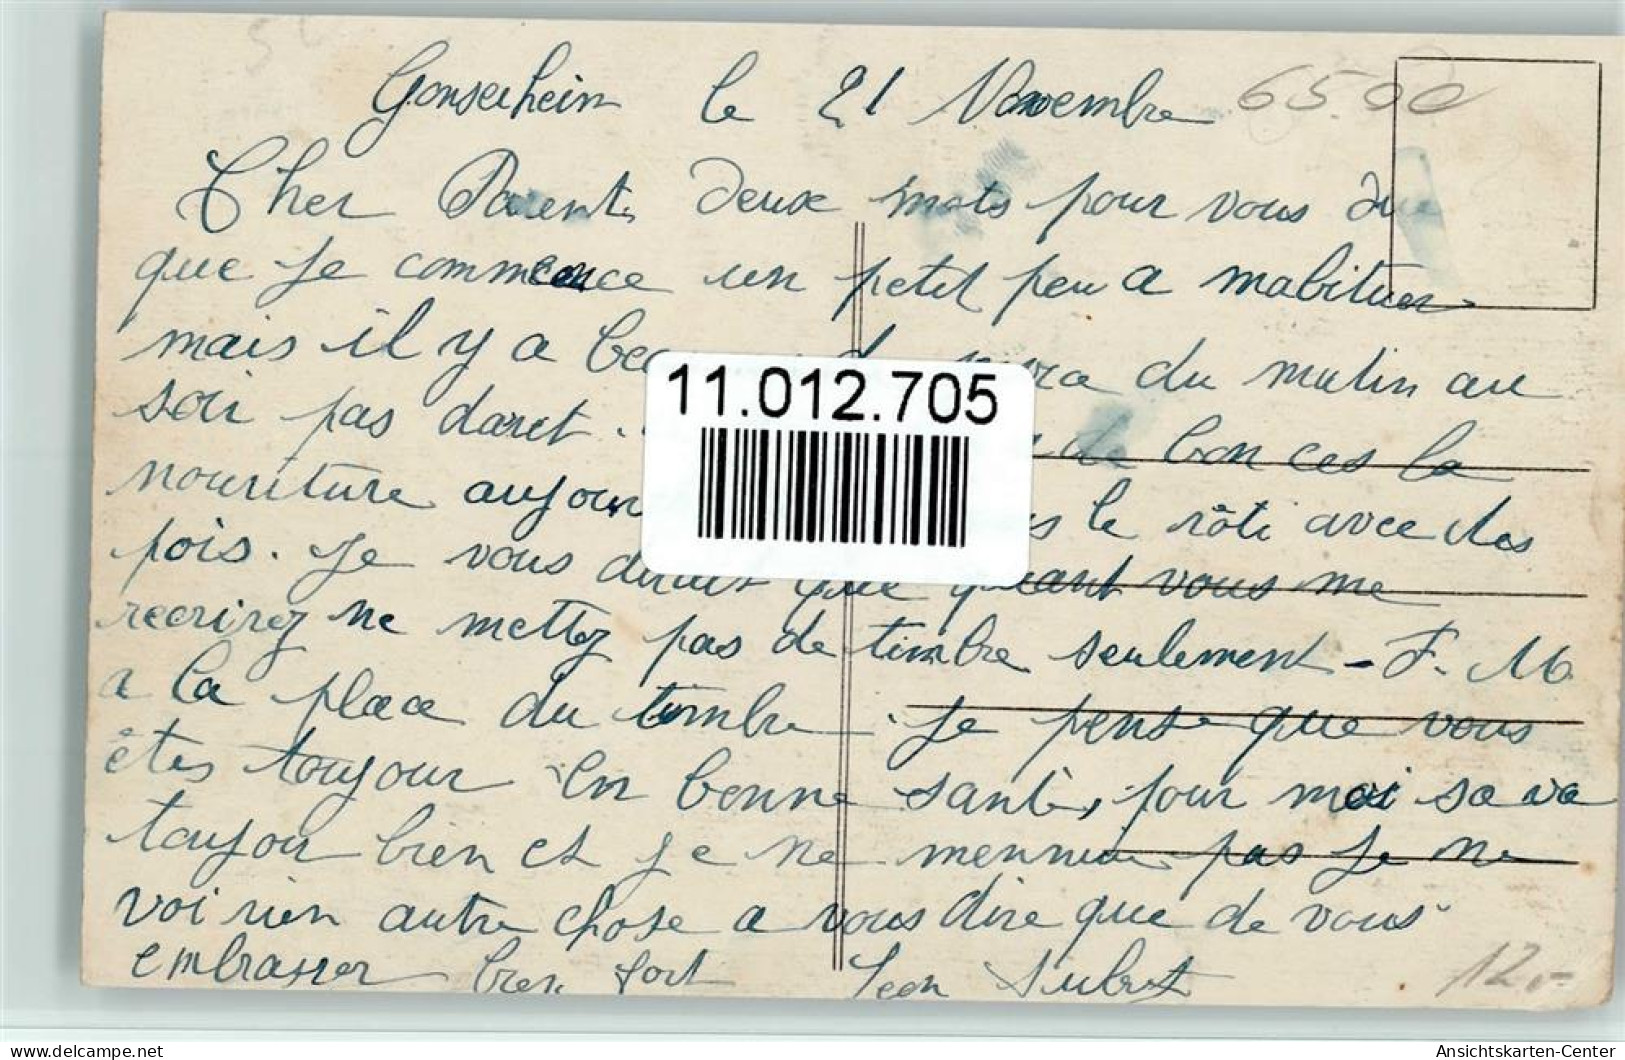 Gonserheim le 21 Novembre 6500
Cher Parents Deux mots pour vous dire
que je commence un petit peu a mabituer
mais il y a du matin au
11.012.705
soir pas daret. de bon ces la
nouriture le rôti avec des
pois. Je vous dirais que quant vous me
recrirez ne mettez pas de timbre seulement - F. M.
a la place du timbre. je pense que vous
êtes toujour en bonne santé, pour moi sa va
toujour bien et je ne mennui pas je ne
voi rien autre chose a vous dire que de vous
embrasser bien fort Leon
12.-
delcampe.net
Ansichtskarten-Center